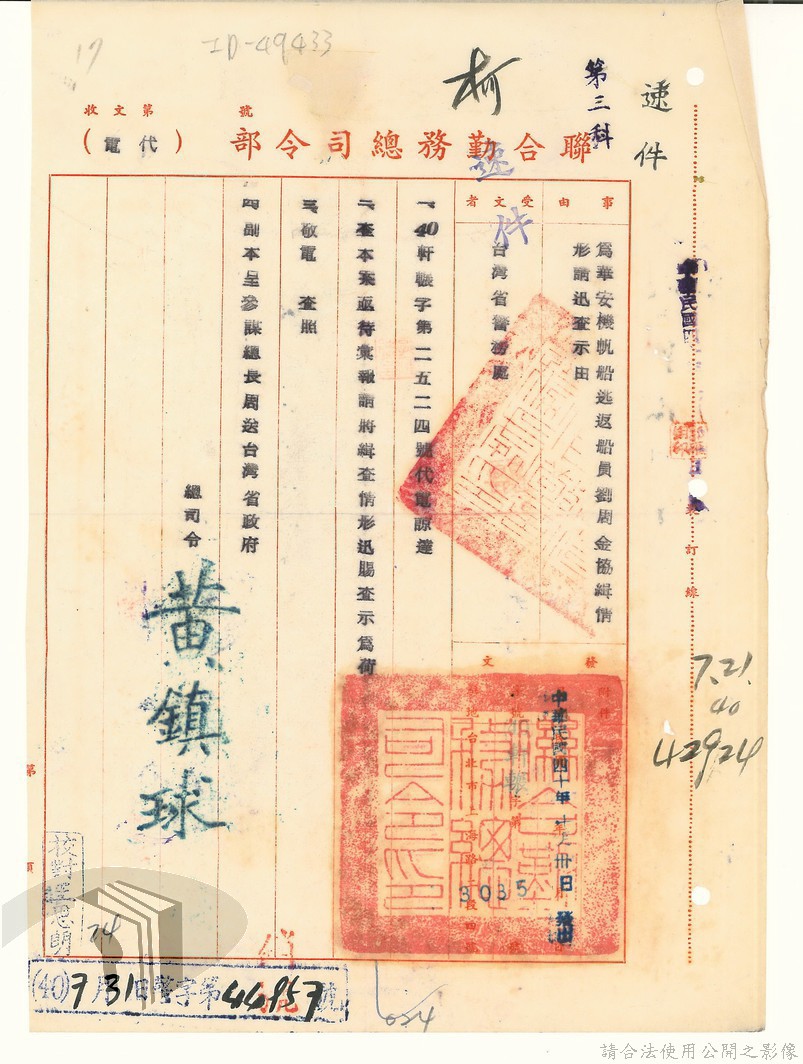 ID-49433
17
速件
第三科
柯
收文第 號
聯合勤務總司令部(代電)
事由
為華安機帆船逃返船員劉周金協緝情
形請迅查示由
受文者
台灣省警務處
速件
一、40軒帳字第二五二四號代電諒達
二、查本案亟待彙報請將緝查情形迅賜查示為荷
三、敬電 查照
四、副本呈參謀總長周送台灣省政府
總司令
黃鎮球
發文
附件
中華民國四十年 月卅日發出
3035
裝訂線
7.21.
40
42924
第 頁
校對
74
(40)7月31日警字第44957號
請合法使用公開之影像